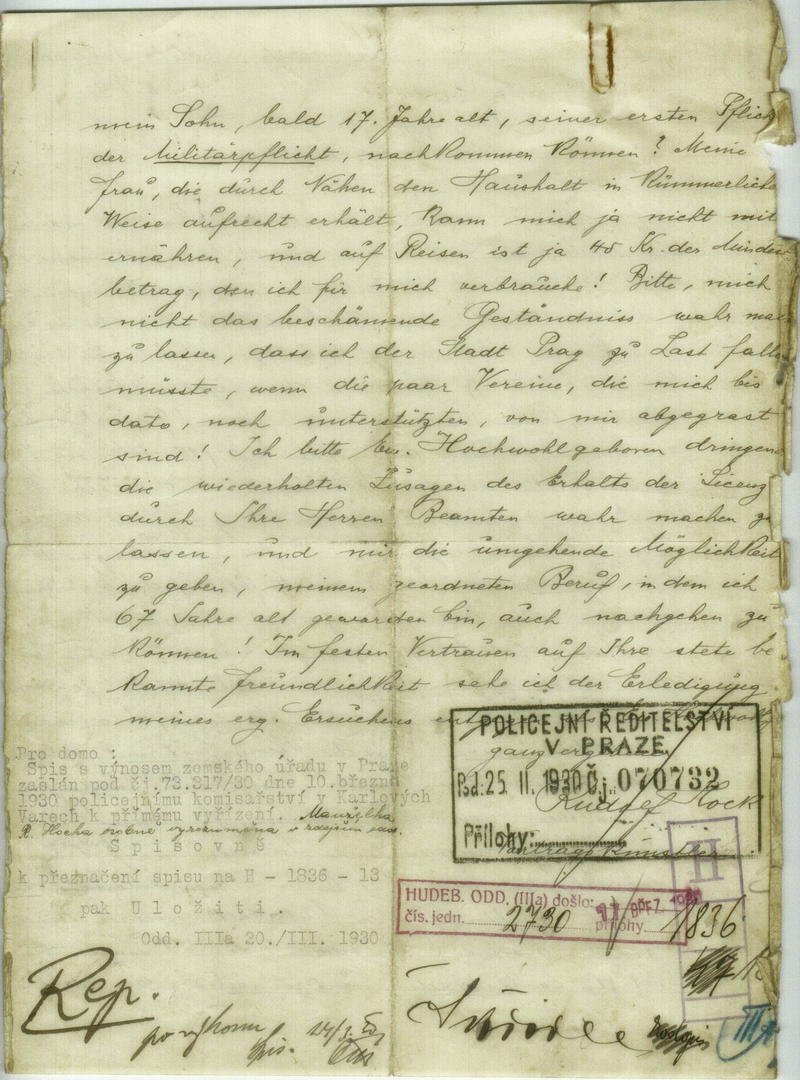 mein Sohn, bald 17. Jahre alt, seiner ersten Pflich
der Militärpflicht, nachkommen können? Meine
Frau, die durch Nähen den Haushalt in kümmerliche
Weise aufrecht erhält, kann mich ja nicht mit
ernähren, und auf Reisen ist ja 40 Kr. der Mindest
betrag, den ich für mich verbrauche! Bitte, mich
nicht das beschämende Geständniss wahr ma
zu lassen, dass ich der Stadt Prag zu Last falle
müsste, wenn die paar Vereine, die mich bis
dato, noch unterstützten, von mir abgegrast
sind! Ich bitte Eu. Hochwohlgeboren dringen
die wiederholten Zusagen des Erhalts der Licenz
durch Ihre Herren Beamten wahr machen zu
lassen, und mir die umgehende Möglichkeit
zu geben, meinem geordneten Beruf, in dem ich
67 Jahre alt geworden bin, auch nachgehen zu
können! Im festen Vertrauen auf Ihre stete be
kannte Freundlichkeit sehe ich der Erledigung
meines erg. Ersuchens
POLICEJNÍ ŘEDITELSTVÍ
V PRAZE
Pod: 25 II. 1930 Čj. 070732
Přílohy:
Rudolf Hock
Pro domo :
Spis s výnosem zemského úřadu v Praze
zaslán pod čj.73.317/30 dne 10.března
1930 policejnímu komisařství v Karlových
Varech k přímému vyřízení. Manželka
R. Hocka
S p i s o v n ě
k přeznačení spisu na H - 1836 - 13
pak U l o ž i t i .
Odd. IIIa 20./III. 1930
HUDEB. ODD. (IIIa) došlo: 11. BŘEZ. 1930
čís. jedn. 2730 přílohy
1836
II
Rep.